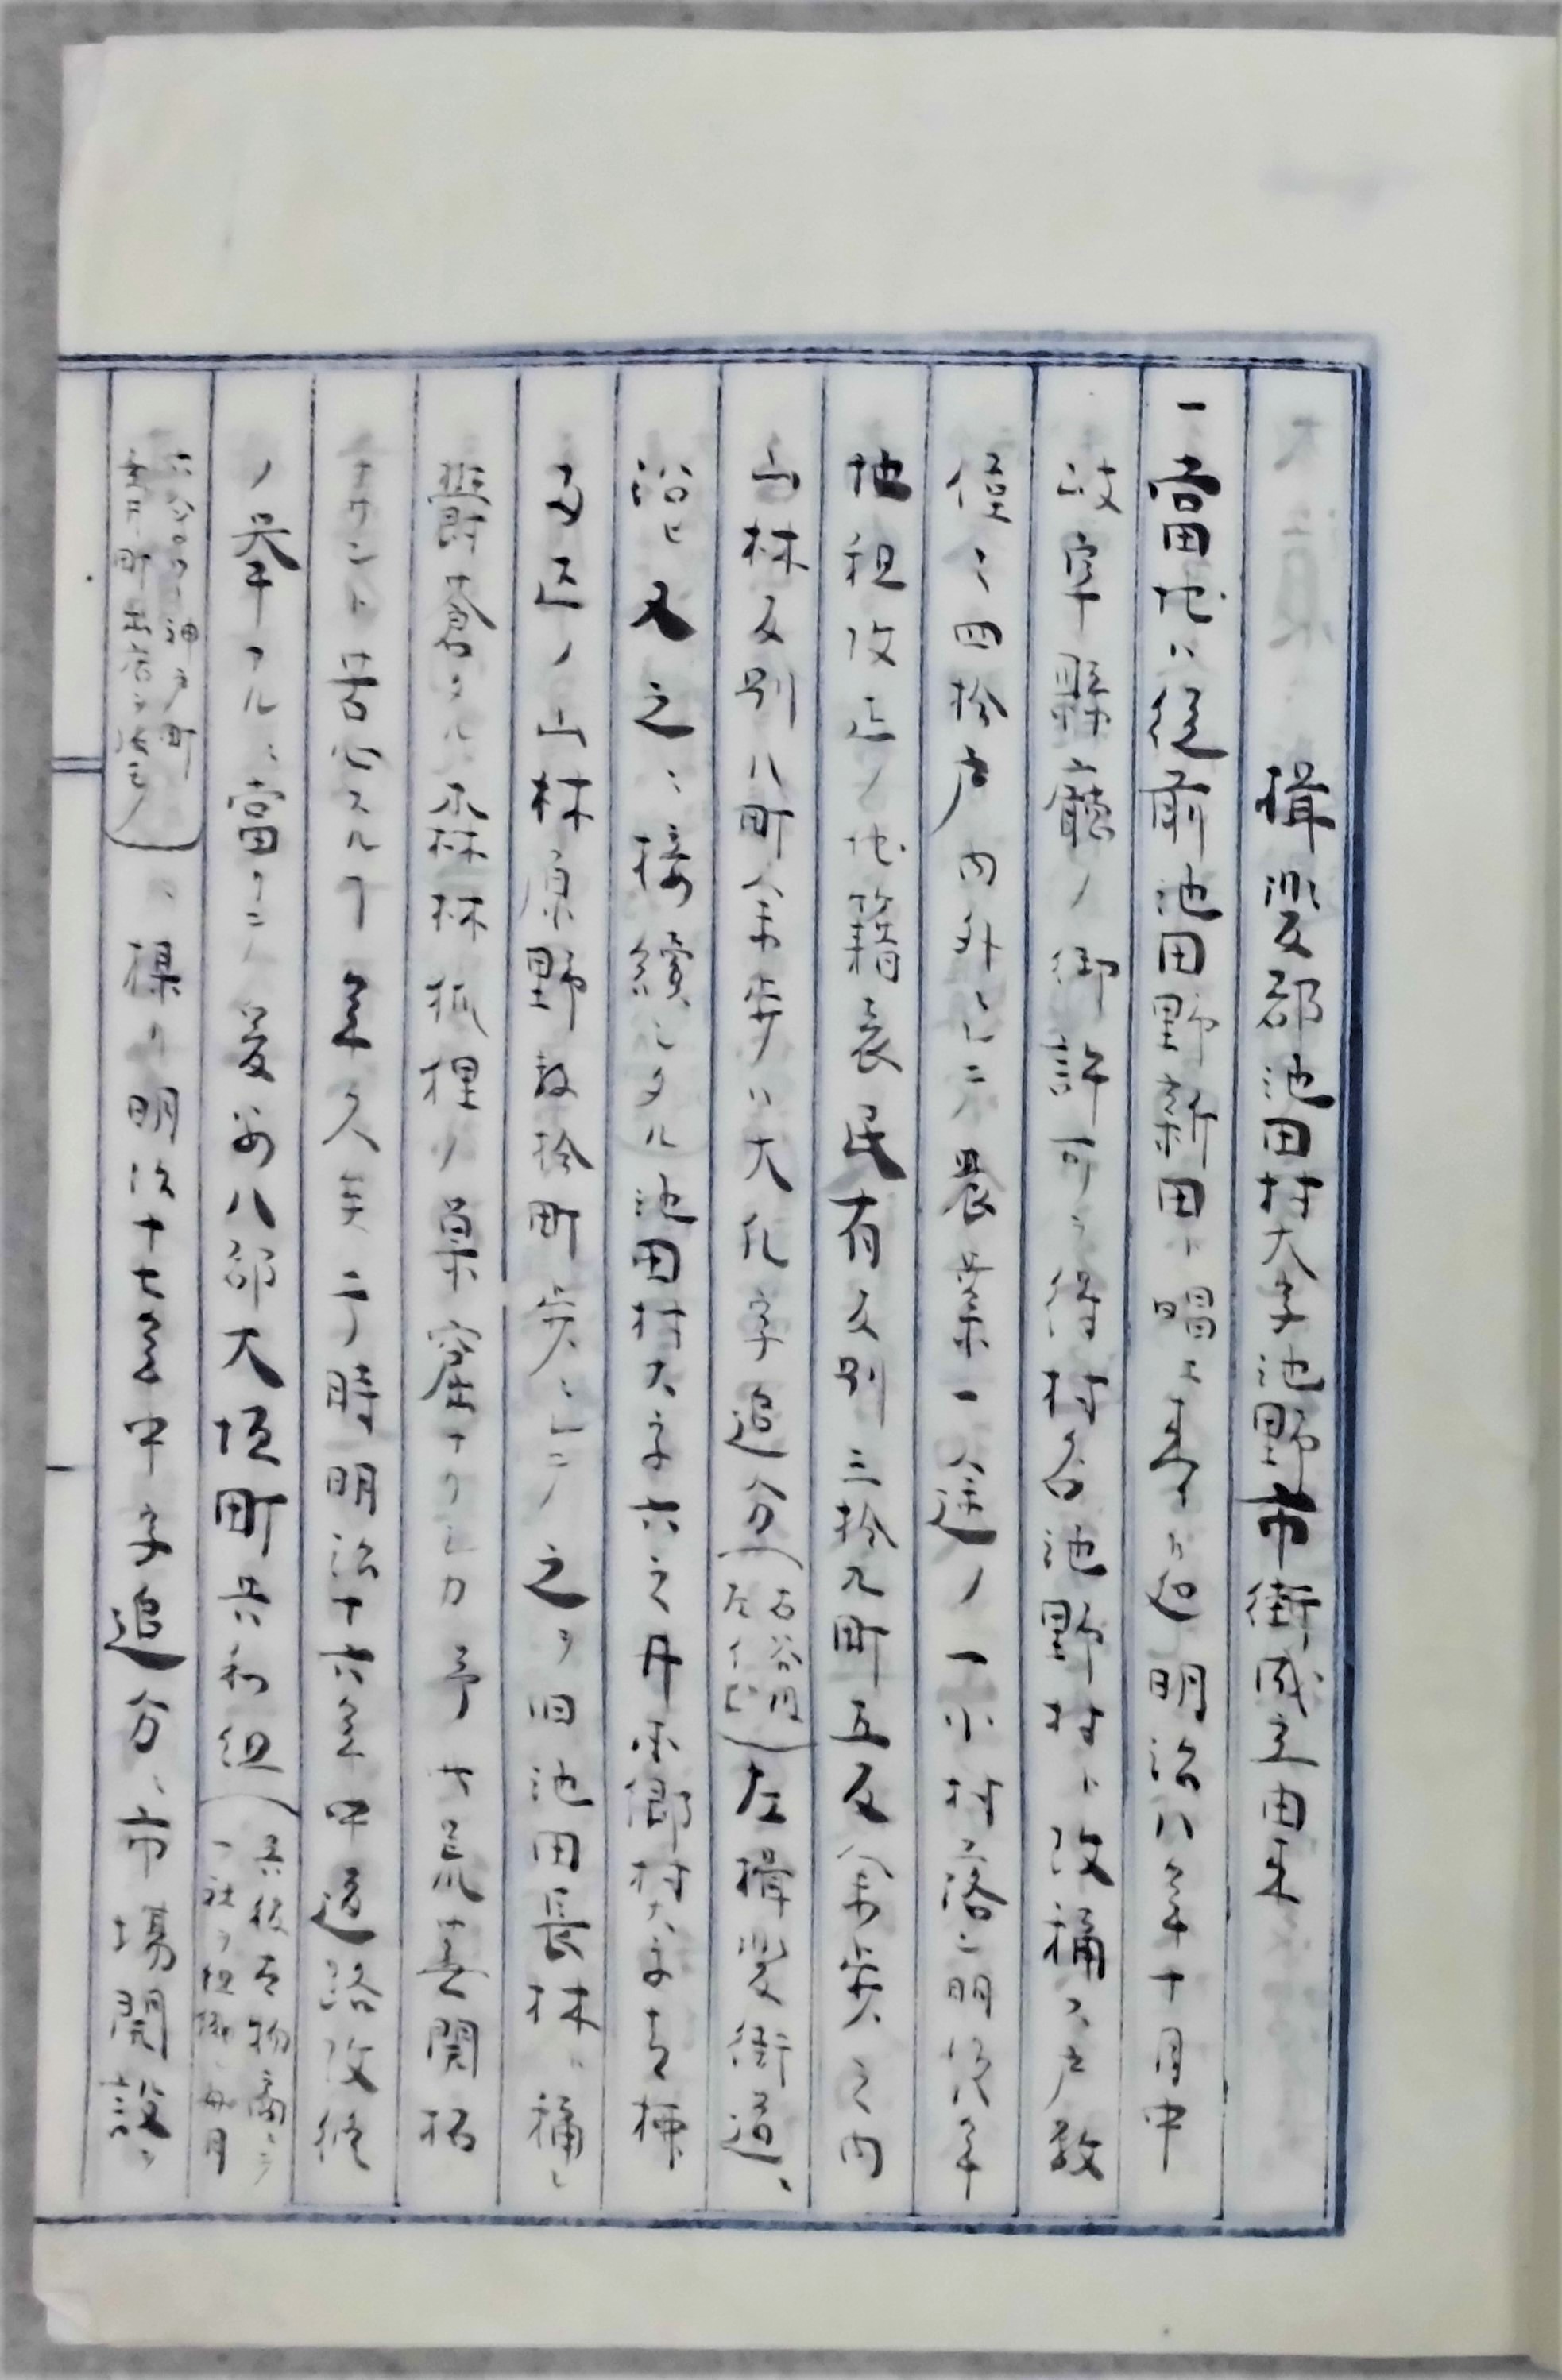 揖斐郡池田村大字池野市街成立由来
一當地ハ従前池田野新田ト唱ヘ来リ近明治八年十月中
故宰縣廳ノ御許可ヲ得村名池野村ト改稱ス戸数
僅々四拾戸内外ニシテ農業一途ノ一小村落ニ明治八年
地租改正ノ地籍表民有反別三拾九町五反余歩之内
山林反別八町余歩ハ大化字追分(右谷汲左イビ)左揖斐街道ニ
沿ヒ又之ニ接續シタル池田村大字六之井本郷村大字青柳
両区ノ山林原野数拾町歩ニシテ之ヲ旧池田長林ト稱シ
欝蒼タル森林狐狸ノ巣窟ナリシカ予カ荒蕪開拓
ナサント苦心スル丁年久矣于時明治十六年中道路改修
ノ挙アルニ當リ爰安八郡大垣町共和組(其後古物商ニシテ一社ヲ組織シ毎月
六谷口神戸町 町出店ヲ)ニ謀リ明治十七年中字追分ニ市場開設ヲ